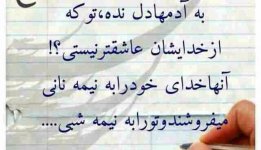 به آدمهادل نده،توکه
ازخدایشان عاشقترنیستی؟!
آنهاخدای خودرابه نیمه نانی
میفروشندوتورابه نیمه شبی....